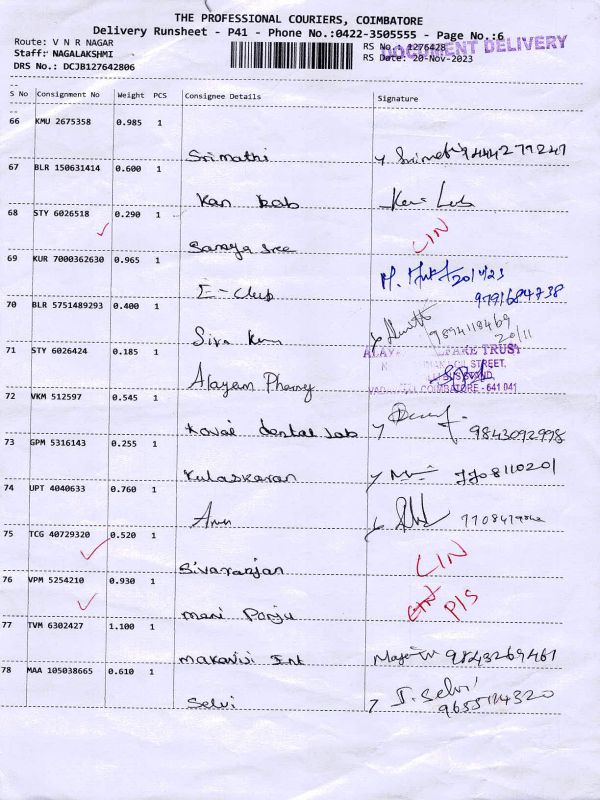 THE PROFESSIONAL COURIERS, COIMBATORE
Delivery Runsheet - P41 - Phone No.:0422-3505555 - Page No.:6
Route: V N R NAGAR
RS No.: 1276428
DOCUMENT DELIVERY
Staff: NAGALAKSHMI
RS Date: 20-Nov-2023
DRS No.: DCJB127642806
S No Consignment No Weight PCS Consignee Details Signature
66 KMU 2675358 0.985 1
Srimathi 9444279247
67 BLR 150631414 0.600 1
Kan
68 STY 6026518 0.290 1
Saranya Sree LIN
69 KUR 7000362630 0.965 1
E-Club
9791684738
70 BLR 5751489293 0.400 1
Siva 9894118469
20/11
71 STY 6026424 0.185 1
TRUST
STREET,
Alayam COIMBATORE - 641 041
72 VKM 512597 0.545 1
Kovai dental lab 9843092998
73 GPM 5316143 0.255 1
Kulaskaran
74 UPT 4040633 0.760 1
Arun
75 TCG 40729320 0.520 1
Sivaranjan LIN
76 VPM 5254210 0.930 1
Mani P/S
77 TVM 6302427 1.100 1
Int 9843269461
78 MAA 105038665 0.610 1
Selvi J. Selvi